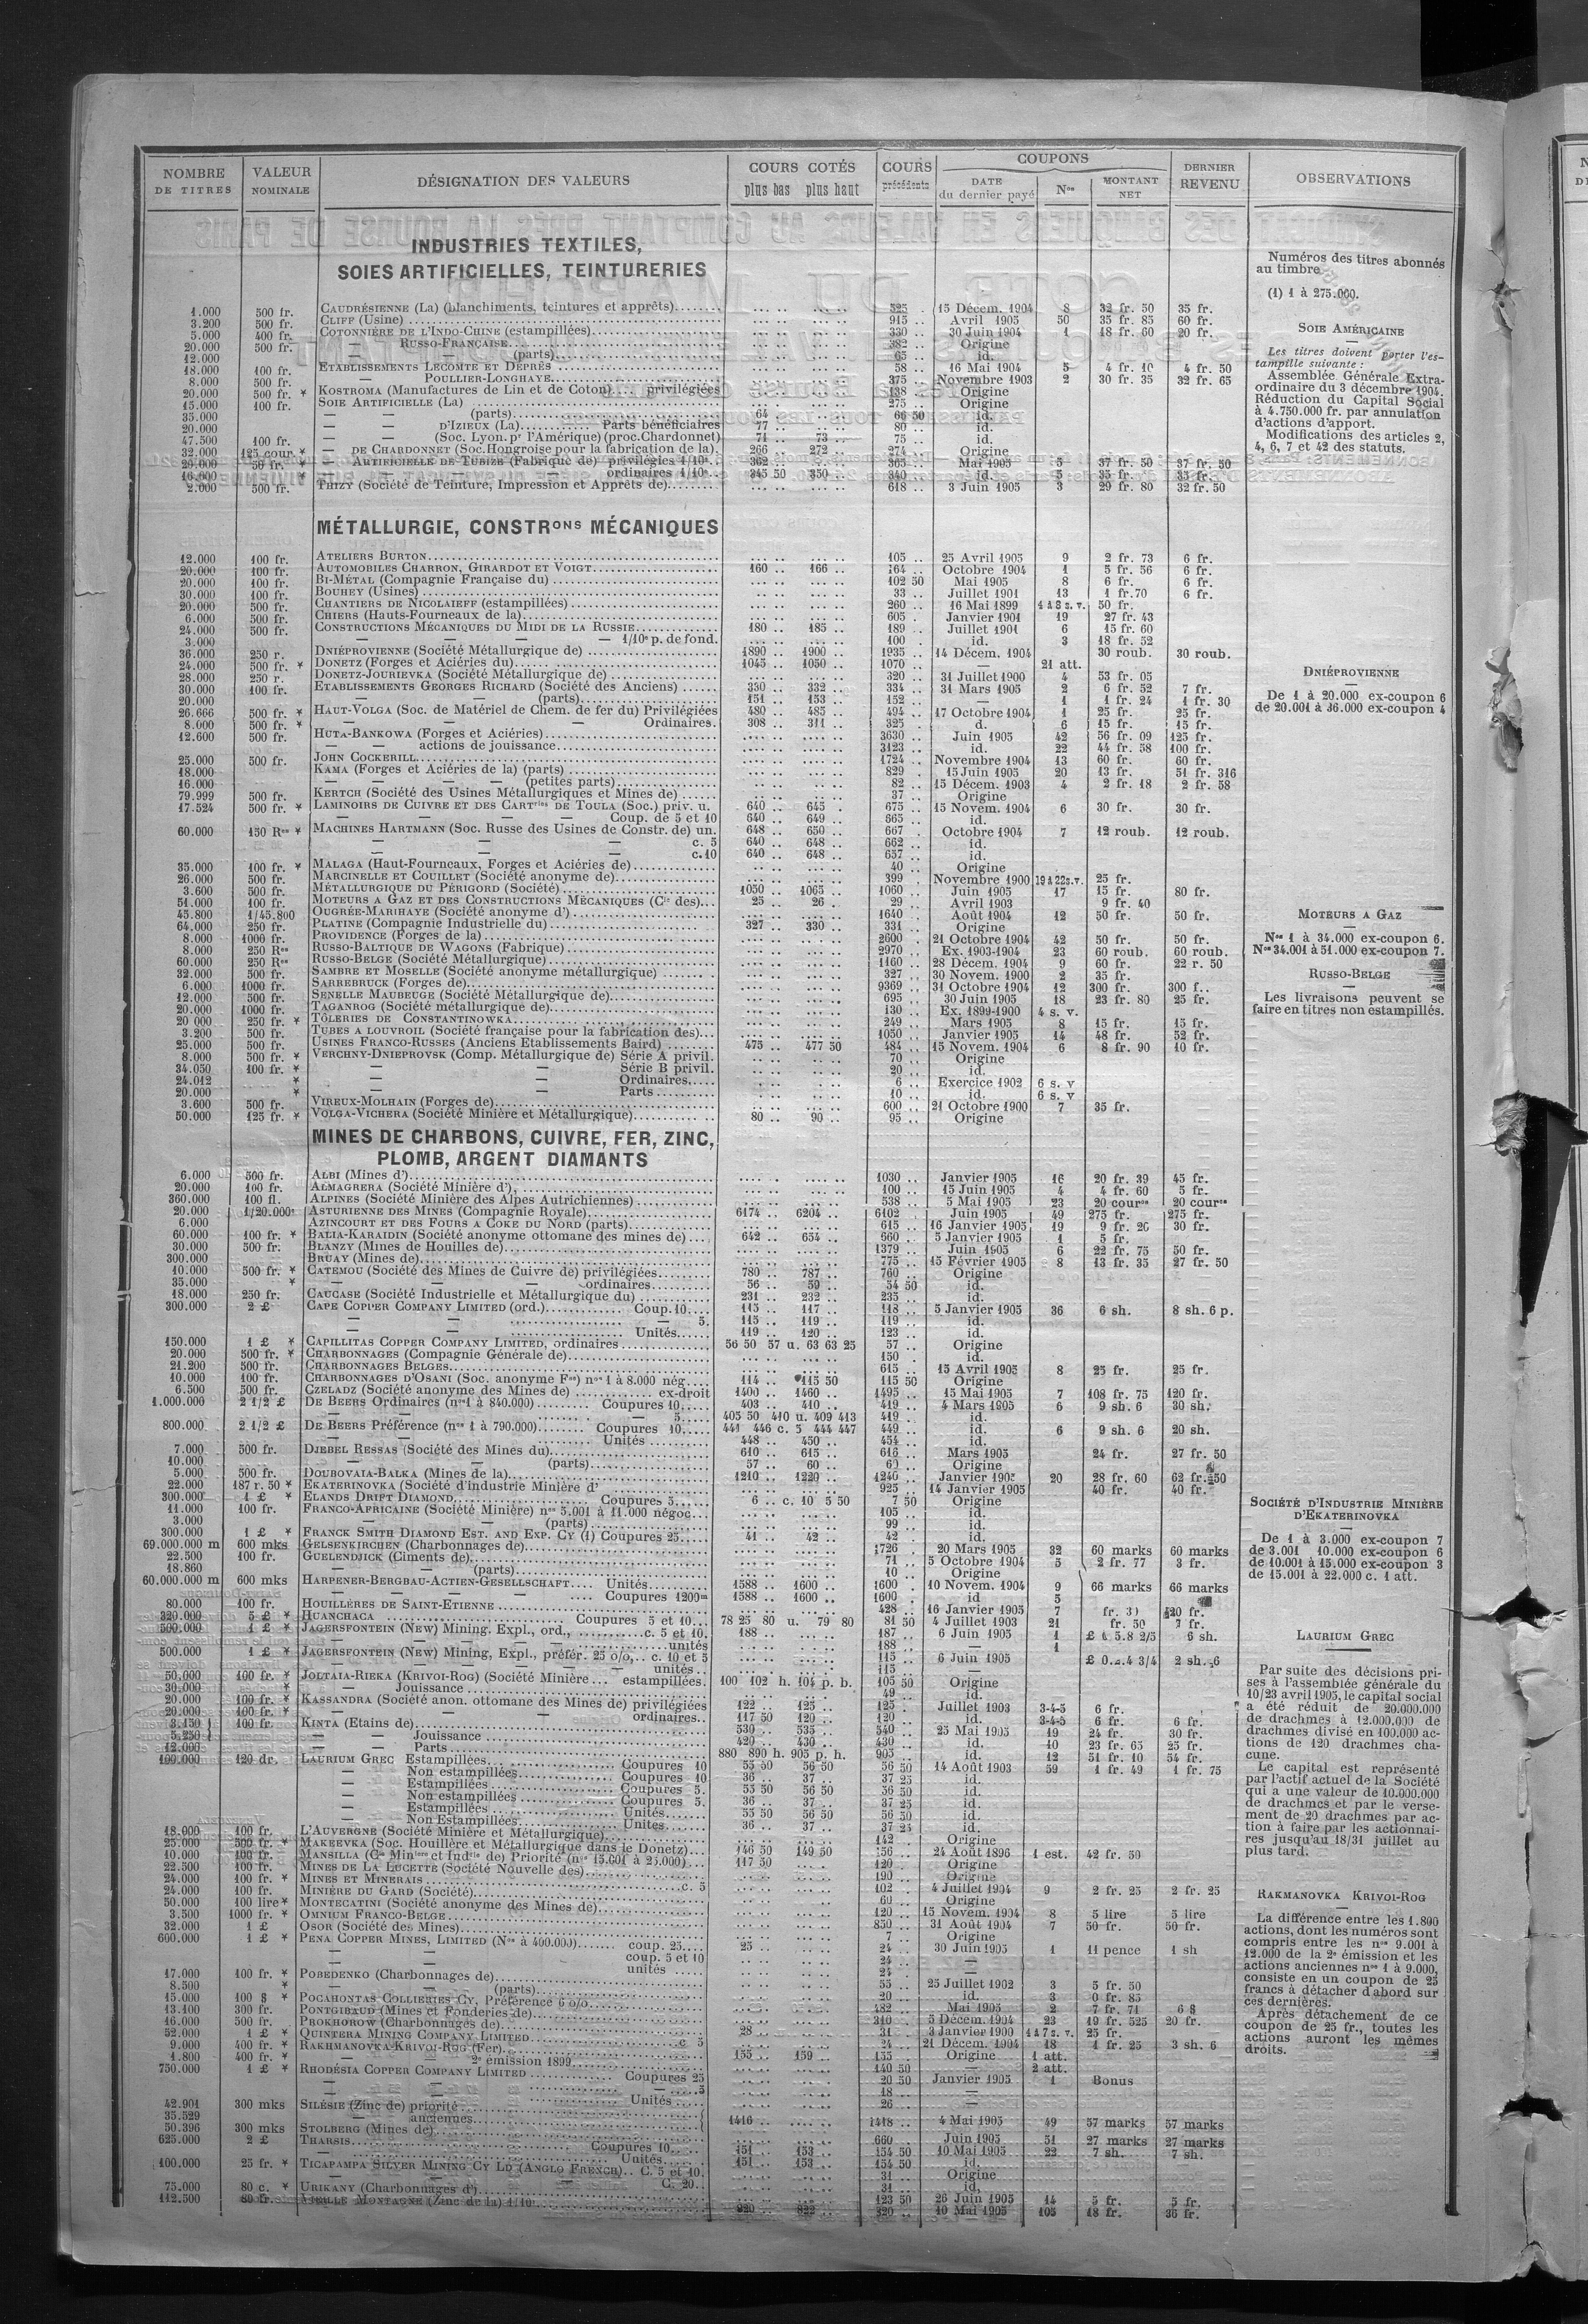 NOMBRE DE TITRES | VALEUR NOMINALE | DÉSIGNATION DES VALEURS | COURS COTÉS plus bas plus haut | COURS précédents | COUPONS DATE du dernier payé | Nos | MONTANT NET | DERNIER REVENU | OBSERVATIONS
INDUSTRIES TEXTILES,
SOIES ARTIFICIELLES, TEINTURERIES
1.000 500 fr. CAUDRÉSIENNE (La) (blanchiments, teintures et apprêts) 525 . 15 Décem. 1904 8 32 fr. 50 35 fr.
3.200 500 fr. CLIFF (Usine) 915 .. Avril 1905 50 35 fr. 85 60 fr.
5.000 400 fr. COTONNIÈRE DE L'INDO-CHINE (estampillées) 330 .. 30 Juin 1904 1 18 fr. 60 20 fr.
20.000 500 fr. — RUSSO-FRANÇAISE 382 .. Origine
12.000 — — (parts) 65 .. id.
18.000 100 fr. ETABLISSEMENTS LECOMTE ET DEPRÈS 58 .. 16 Mai 1904 5 4 fr. 10 4 fr. 50
8.000 500 fr. — POULLIER-LONGHAYE 375 .. Novembre 1903 2 30 fr. 35 32 fr. 65
20.000 500 fr. * KOSTROMA (Manufactures de Lin et de Coton) privilégiées 138 .. Origine
15.000 100 fr. SOIE ARTIFICIELLE (La) 275 .. Origine
35.000 — — (parts) 64 .. 66 50 id.
20.000 — D'IZIEUX (La) Parts bénéficiaires 77 .. 80 .. id.
47.500 100 fr. — — (Soc. Lyon. pr l'Amérique) (proc. Chardonnet) 71 .. 73 .. 75 .. id.
32.000 125 cour. * — DE CHARDONNET (Soc. Hongroise pour la fabrication de la) 266 .. 272 .. 274 .. Origine
20.000 50 fr. * — ARTIFICIELLE DE TUBIZE (Fabrique de) privilégiés 1/10e 362 .. 365 .. Mai 1905 5 37 fr. 50 37 fr. 50
16.000 * — — ordinaires 1/10e 345 50 350 .. 340 .. id. 5 35 fr. 35 fr.
2.000 500 fr. THIZY (Société de Teinture, Impression et Apprêts de) 618 .. 3 Juin 1905 3 29 fr. 80 32 fr. 50
Numéros des titres abonnés
au timbre
(1) 1 à 275.000.
SOIE AMÉRICAINE
Les titres doivent porter l'es-
tampille suivante :
Assemblée Générale Extra-
ordinaire du 3 décembre 1904.
Réduction du Capital Social
à 4.750.000 fr. par annulation
d'actions d'apport.
Modifications des articles 2,
4, 6, 7 et 42 des statuts.
MÉTALLURGIE, CONSTRons MÉCANIQUES
12.000 100 fr. ATELIERS BURTON 105 .. 25 Avril 1905 9 2 fr. 73 6 fr.
20.000 100 fr. AUTOMOBILES CHARRON, GIRARDOT ET VOIGT 160 .. 166 .. 164 .. Octobre 1904 1 5 fr. 56 6 fr.
20.000 100 fr. BI-MÉTAL (Compagnie Française du) 102 50 Mai 1905 8 6 fr. 6 fr.
30.000 100 fr. BOUHEY (Usines) 33 .. Juillet 1901 13 1 fr. 70 6 fr.
20.000 500 fr. CHANTIERS DE NICOLAIEFF (estampillées) 260 .. 16 Mai 1899 4 à 8 s. v. 50 fr.
6.000 500 fr. CHIERS (Hauts-Fourneaux de la) 605 . Janvier 1901 19 27 fr. 43
24.000 500 fr. CONSTRUCTIONS MÉCANIQUES DU MIDI DE LA RUSSIE 180 .. 185 .. 189 .. Juillet 1901 6 15 fr. 60
3.000 — — — 1/10e p. de fond. 100 . id. 3 18 fr. 52
36.000 250 r. DNIÉPROVIENNE (Société Métallurgique de) 1890 .. 1900 .. 1935 .. 14 Décem. 1904 30 roub. 30 roub.
24.000 500 fr. * DONETZ (Forges et Aciéries du) 1045 .. 1050 .. 1070 .. — 21 att.
28.000 250 r. DONETZ-JOURIEVKA (Société Métallurgique de) 320 .. 31 Juillet 1900 4 53 fr. 05
30.000 100 fr. ETABLISSEMENTS GEORGES RICHARD (Société des Anciens) 330 .. 332 .. 334 .. 31 Mars 1905 2 6 fr. 52 7 fr.
20.000 — — (parts) 151 .. 153 .. 152 .. — 1 1 fr. 24 1 fr. 30
26.666 500 fr. * HAUT-VOLGA (Soc. de Matériel de Chem. de fer du) Privilégiées 480 .. 485 .. 494 .. 17 Octobre 1904 1 25 fr. 25 fr.
8.000 500 fr. * — — Ordinaires. 308 .. 311 .. 325 .. d. 6 15 fr. 15 fr.
12.600 500 fr. HUTA-BANKOWA (Forges et Aciéries) 3630 .. Juin 1905 42 56 fr. 09 125 fr.
— — actions de jouissance 3123 .. id. 22 44 fr. 58 100 fr.
25.000 500 fr. JOHN COCKERILL 1724 .. Novembre 1904 13 60 fr. 60 fr.
18.000 KAMA (Forges et Aciéries de la) (parts) 829 15 Juin 1905 20 13 fr. 51 fr. 316
16.000 — — — (petites parts) 82 .. 15 Décem. 1903 4 2 fr. 18 2 fr. 58
79.999 500 fr. KERTCH (Société des Usines Métallurgiques et Mines de) 37 .. Origine
17.524 500 fr. * LAMINOIRS DE CUIVRE ET DES CARTries DE TOULA (Soc.) priv. u. 640 .. 645 . 675 .. 15 Novem. 1904 6 30 fr. 30 fr.
— — — Coup. de 5 et 10 640 .. 649 .. 665 .. id.
60.000 150 Res * MACHINES HARTMANN (Soc. Russe des Usines de Constr. de) un. 648 .. 650 .. 667 . Octobre 1904 7 12 roub. 12 roub.
— — — c. 5 640 .. 648 .. 662 .. id.
— — — c. 10 640 .. 648 .. 657 .. id.
35.000 100 fr. * MALAGA (Haut-Fourneaux, Forges et Aciéries de) 40 .. Origine
26.000 500 fr. MARCINELLE ET COUILLET (Société anonyme de) 399 . Novembre 1900 19 à 22 s. v. 25 fr.
3.600 500 fr. MÉTALLURGIQUE DU PÉRIGORD (Société) 1050 .. 1065 .. 1060 .. Juin 1905 17 15 fr. 80 fr.
51.000 100 fr. MOTEURS A GAZ ET DES CONSTRUCTIONS MÉCANIQUES (Cie des) 25 .. 26 . 29 .. Avril 1903 9 fr. 40
45.800 1/45.800 OUGRÉE-MARIHAYE (Société anonyme d') 1640 . Août 1904 12 50 fr. 50 fr.
64.000 250 fr. PLATINE (Compagnie Industrielle du) 327 .. 330 .. 331 .. Origine
8.000 1000 fr. PROVIDENCE (Forges de la) 2600 . 21 Octobre 1904 42 50 fr. 50 fr.
8.000 250 Res RUSSO-BALTIQUE DE WAGONS (Fabrique) 2970 .. Ex. 1903-1904 23 60 roub. 60 roub.
60.000 250 Res RUSSO-BELGE (Société Métallurgique) 1160 .. 28 Décem. 1904 9 60 fr. 22 r. 50
32.000 500 fr. SAMBRE ET MOSELLE (Société anonyme métallurgique) 327 .. 30 Novem. 1900 2 35 fr.
6.000 1000 fr. SARREBRUCK (Forges de) 9369 .. 31 Octobre 1904 12 300 fr. 300 f..
12.000 500 fr. SENELLE MAUBEUGE (Société Métallurgique de) 695 .. 30 Juin 1905 18 23 fr. 80 25 fr.
20.000 1000 fr. TAGANROG (Société métallurgique de) 130 .. Ex. 1899-1900 4 s. v.
20 000 250 fr. * TÔLERIES DE CONSTANTINOWKA 249 .. Mars 1905 8 15 fr. 15 fr.
3.200 500 fr. TUBES A LOUVROIL (Société française pour la fabrication des) 1050 .. Janvier 1905 14 48 fr. 52 fr.
25.000 500 fr. USINES FRANCO-RUSSES (Anciens Etablissements Baird) 475 .. 477 50 484 .. 15 Novem. 1904 6 8 fr. 90 10 fr.
8.000 500 fr. * VERCHNY-DNIEPROVSK (Comp. Métallurgique de) Série A privil. 70 .. Origine
34.050 100 fr. * — — Série B privil. 20 .. id.
24.012 * — — Ordinaires 6 .. Exercice 1902 6 s. v
20.000 * — — Parts 10 .. id. 6 s. v
3.600 500 fr. VIREUX-MOLHAIN (Forges de) 600 .. 21 Octobre 1900 7 35 fr.
50.000 125 fr. * VOLGA-VICHERA (Société Minière et Métallurgique) 80 .. 90 .. 95 .. Origine
DNIÉPROVIENNE
De 1 à 20.000 ex-coupon 6
de 20.001 à 36.000 ex-coupon 4
MOTEURS A GAZ
Nos 1 à 34.000 ex-coupon 6.
Nos 34.001 à 51.000 ex-coupon 7.
RUSSO-BELGE
Les livraisons peuvent se
faire en titres non estampillés.
MINES DE CHARBONS, CUIVRE, FER, ZINC,
PLOMB, ARGENT DIAMANTS
6.000 500 fr. ALBI (Mines d') 1030 .. Janvier 1905 16 20 fr. 39 45 fr.
20.000 100 fr. ALMAGRERA (Société Minière d') 100 .. 15 Juin 1905 4 4 fr. 60 5 fr.
360.000 100 fl. ALPINES (Société Minière des Alpes Autrichiennes) 538 .. 5 Mai 1905 23 20 cournes 20 cournes
20.000 1/20.000e ASTURIENNE DES MINES (Compagnie Royale) 6174 .. 6204 .. 6102 . Juin 1905 49 275 fr. 275 fr.
6.000 AZINCOURT ET DES FOURS A COKE DU NORD (parts) 615 .. 16 Janvier 1905 19 9 fr. 26 30 fr.
60.000 100 fr. * BALIA-KARAIDIN (Société anonyme ottomane des mines de) 642 .. 654 .. 660 .. 5 Janvier 1905 1 5 fr.
30.000 500 fr. BLANZY (Mines de Houilles de) 1379 .. Juin 1905 6 22 fr. 75 50 fr.
300.000 BRUAY (Mines de) 775 .. 15 Février 1905 8 13 fr. 35 27 fr. 50
10.000 500 fr. * CATEMOU (Société des Mines de Cuivre de) privilégiées 780 .. 787 .. 760 .. Origine
35.000 * — — ordinaires 56 .. 59 .. 54 50 id.
18.000 250 fr. CAUCASE (Société Industrielle et Métallurgique du) 231 .. 232 .. 235 .. id.
300.000 2 £ CAPE COPPER COMPANY LIMITED (ord.) Coup. 10 115 .. 117 .. 118 .. 5 Janvier 1905 36 6 sh. 8 sh. 6 p.
— — — 5. 115 .. 119 .. 119 .. id.
— — Unités 119 .. 120 .. 123 .. id.
150.000 1 £ * CAPILLITAS COPPER COMPANY LIMITED, ordinaires 56 50 57 u. 63 63 25 57 .. Origine
20.000 500 fr. * CHARBONNAGES (Compagnie Générale de) 150 . id.
21.200 500 fr. CHARBONNAGES BELGES 615 .. 15 Avril 1905 8 25 fr. 25 fr.
10.000 100 fr. CHARBONNAGES D'OSANI (Soc. anonyme Fse) nos 1 à 8.000 nég. 114 .. 115 50 115 50 Origine
6.500 500 fr. CZELADZ (Société anonyme des Mines de) ex-droit 1400 .. 1460 .. 1495 .. 15 Mai 1905 7 108 fr. 75 120 fr.
1.000.000 2 1/2 £ DE BEERS Ordinaires (nos 1 à 840.000) Coupures 10 403 .. 410 .. 419 .. 4 Mars 1905 6 9 sh. 6 30 sh.
— — — 5 405 50 410 u. 409 413 419 .. id.
800.000 2 1/2 £ DE BEERS Préférence (nos 1 à 790.000) Coupures 10 441 446 c. 5 444 447 449 .. id. 6 9 sh. 6 20 sh.
— — Unités 448 .. 450 .. 454 .. id.
7.000 500 fr. DJEBEL RESSAS (Société des Mines du) 610 .. 615 .. 616 .. Mars 1905 24 fr. 27 fr. 50
10.000 — — (parts) 57 .. 60 .. 60 .. Origine
5.000 500 fr. DOUBOVAIA-BALKA (Mines de la) 1210 .. 1220 .. 1240 .. Janvier 1905 20 28 fr. 60 62 fr. 50
22.000 187 r. 50 * EKATERINOVKA (Société d'industrie Minière d') 925 .. 14 Janvier 1905 40 fr. 40 fr.
300.000 1 £ * ELANDS DRIFT DIAMOND Coupures 5 6 .. c. 10 5 50 7 50 Origine
11.000 100 fr. FRANCO-AFRICAINE (Société Minière) nos 5.001 à 11.000 négoc. 105 .. id.
3.000 — — (parts) 99 .. id.
300.000 1 £ * FRANCK SMITH DIAMOND EST. AND EXP. CY (1) Coupures 25 41 .. 42 .. 42 .. id.
69.000.000 m 600 mks GELSENKIRCHEN (Charbonnages de) 1726 .. 20 Mars 1905 32 60 marks 60 marks
22.500 100 fr. GUELENDJICK (Ciments de) 71 .. 5 Octobre 1904 5 2 fr. 77 3 fr.
18.860 — — (parts) 10 .. Origine
60.000.000 m 600 mks HARPENER-BERGBAU-ACTIEN-GESELLSCHAFT Unités 1588 .. 1600 .. 1600 . 10 Novem. 1904 9 66 marks 66 marks
— — — Coupures 1200m 1588 .. 1600 .. 1600 . id 5
80.000 100 fr. HOUILLÈRES DE SAINT-ETIENNE 428 .. 16 Janvier 1905 7
320.000 5 £ * HUANCHACA Coupures 5 et 10 78 25 80 u. 79 80 81 50 4 Juillet 1903 21 fr. 50 7 fr.
500.000 1 £ * JAGERSFONTEIN (NEW) Mining. Expl., ord., c. 5 et 10. 188 .. 187 .. 6 Juin 1905 1 6 sh.
— — unités 188 .. — 1
500.000 1 £ * JAGERSFONTEIN (NEW) Mining, Expl., préfér. 25 o/o, c. 10 et 5 115 .. 6 Juin 1905 2 sh. 6
— — unités 115 .. —
50.000 100 fr. * JOLTAIA-RIEKA (KRIVOI-ROG) (Société Minière estampillées. 100 102 h. 104 p. b. 105 50 Origine
30.000 * — Jouissance 49 .. id.
20.000 100 fr. * KASSANDRA (Société anon. ottomane des Mines de) privilégiées 122 .. 125 .. 125 .. Juillet 1903 3-4-5 6 fr.
20.000 100 fr. * — — ordinaires 117 50 120 .. 120 .. id. 3-4-5 6 fr. 6 fr.
3.150 100 fr. KINTA (Etains de) 530 .. 535 .. 540 .. 25 Mai 1905 19 24 fr. 30 fr.
5.250 — — Jouissance 420 .. 430 .. 430 .. id. 10 23 fr. 65 25 fr.
12.000 — — Parts 880 890 h. 905 p. h. 905 .. id. 12 51 fr. 10 54 fr.
100.000 120 dr. LAURIUM GREC Estampillées Coupures 10 55 50 56 50 56 50 14 Août 1903 59 1 fr. 49 1 fr. 75
— Non estampillées Coupures 10 36 .. 37 .. 37 25 id.
— Estampillées Coupures 5. 55 50 56 50 56 50 id.
— Non estampillées Coupures 5. 36 .. 37 .. 37 25 id.
— Estampillées Unités 55 50 56 50 56 50 id.
— Non Estampillées Unites 36 .. 37 .. 37 25 id.
18.000 100 fr. L'AUVERGNE (Société Minière et Métallurgique) 142 .. Origine
25.000 500 fr. * MAKEEVKA (Soc. Houillère et Métallurgique dans le Donetz) 146 50 149 50 156 .. 24 Août 1896 1 est. 42 fr. 50
10.000 100 fr. MANSILLA (Cie Minière et Indle de) Priorité (nos 15.001 à 25.000) 117 50 120 .. Origine
22.500 100 fr. MINES DE LA LUCETTE (Société Nouvelle des) 190 .. Origine
24.000 100 fr. * MINES ET MINERAIS c. 5 102 . 4 Juillet 1904 9 2 fr. 25 2 fr. 25
24.000 100 fr. MINIÈRE DU GARD (Société) 60 .. Origine
50.000 100 lire * MONTECATINI (Société anonyme des Mines de) 120 .. 15 Novem. 1904 8 5 lire 5 lire
3.500 1000 fr. * OMNIUM FRANCO-BELGE 850 .. 31 Août 1904 7 50 fr. 50 fr.
32.000 1 £ OSOR (Société des Mines) 7 .. Origine
600.000 1 £ * PENA COPPER MINES, LIMITED (Nos à 400.000) coup. 25 25 .. 24 .. 30 Juin 1905 1 11 pence 1 sh
— — coup. 5 et 10 24 .. —
— — unités 24 .. —
17.000 100 fr. * POBEDENKO (Charbonnages de) 55 .. 25 Juillet 1902 3 5 fr. 50
8.500 * — (parts) 20 .. id. 3 0 fr. 85
15.000 100 $ * POCAHONTAS COLLIERIES CY, Préférence 6 o/o 482 .. Mai 1905 2 7 fr. 71 6 $
13.100 300 fr. PONTGIBAUD (Mines et Fonderies de) 310 .. 5 Décem. 1904 23 19 fr. 525 20 fr.
16.000 500 fr. PROKHOROW (Charbonnages de) 28 .. 31 .. 3 Janvier 1900 4 à 7 s. v. 25 fr.
52.000 1 £ * QUINTERA MINING COMPANY LIMITED c 5 24 .. 21 Décem. 1904 18 1 fr. 25 3 sh. 6
9.000 400 fr. * RAKHMANOVKA-KRIVOI-ROG (Fer) 155 .. 159 .. 155 .. Origine 1 att.
1.800 400 fr. * — — 2e émission 1899 140 50 — 2 att.
750.000 1 £ * RHODÉSIA COPPER COMPANY LIMITED Coupures 25 20 50 Janvier 1905 1 Bonus
— — 5 18 .. —
— — Unités 26 .. —
42.901 300 mks SILÉSIE (Zinc de) priorité
35.529 — anciennes 1416 .. 1418 .. 4 Mai 1905 49 57 marks 57 marks
50.396 300 mks STOLBERG (Mines de) 660 . Juin 1905 51 27 marks 27 marks
625.000 2 £ THARSIS Coupures 10 151 .. 153 .. 154 50 10 Mai 1905 22 7 sh. 7 sh.
— Unités 151 .. 153 .. 154 50 id.
100.000 25 fr. * TICAPAMPA SILVER MINING CY LD (ANGLO FRENCH) C. 5 et 10. 31 .. Origine
— C. 20 31 .. id.
75.000 80 c. * URIKANY (Charbonnages d') 123 50 26 Juin 1905 14 5 fr. 5 fr.
112.500 80 fr. VIEILLE MONTAGNE (Zinc de la) 1/10e 820 .. 822 .. 820 .. 10 Mai 1905 105 18 fr. 36 fr.
SOCIÉTÉ D'INDUSTRIE MINIÈRE
D'EKATERINOVKA
De 1 à 3.000 ex-coupon 7
de 3.001 10.000 ex-coupon 6
de 10.001 à 15.000 ex-coupon 3
de 15.001 à 22.000 c. 1 att.
LAURIUM GREC
Par suite des décisions pri-
ses à l'assemblée générale du
10/23 avril 1905, le capital social
a été réduit de 20.000.000
de drachmes à 12.000.000 de
drachmes divisé en 100.000 ac-
tions de 120 drachmes cha-
cune.
Le capital est représenté
par l'actif actuel de la Société
qui a une valeur de 10.000.000
de drachmes et par le verse-
ment de 20 drachmes par ac-
tion à faire par les actionnai-
res jusqu'au 18/31 juillet au
plus tard.
RAKMANOVKA KRIVOI-ROG
La différence entre les 1.800
actions, dont les numéros sont
compris entre les nos 9.001 à
12.000 de la 2e émission et les
actions anciennes nos 1 à 9.000,
consiste en un coupon de 25
francs à détacher d'abord sur
ces dernières.
Après détachement de ce
coupon de 25 fr., toutes les
actions auront les mêmes
droits.